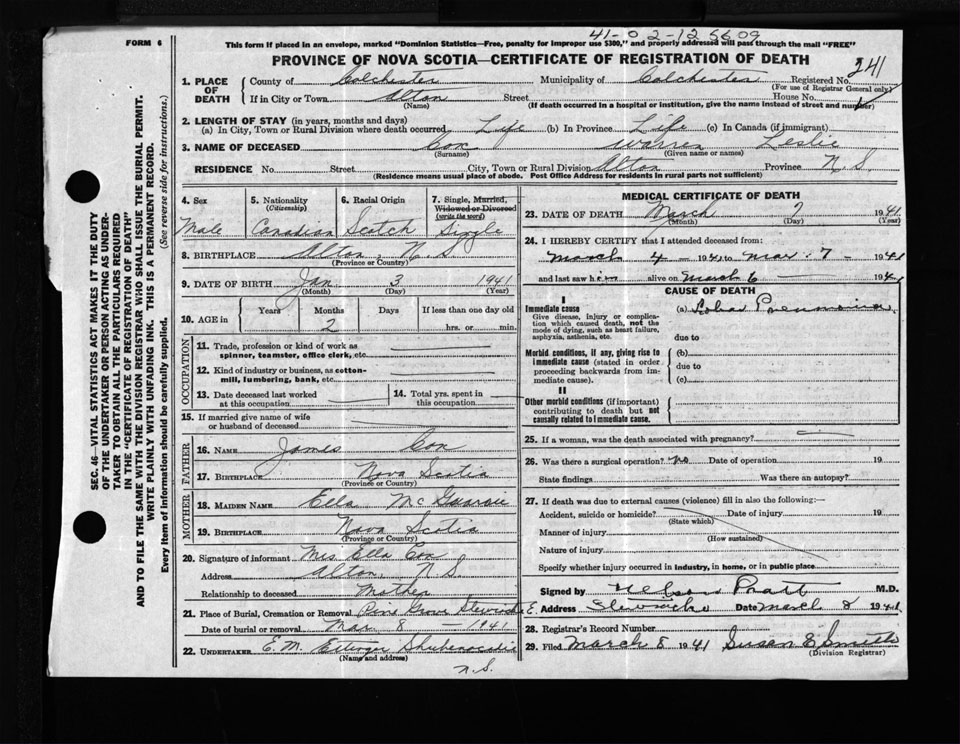 41-02-125609
FORM 6
This form if placed in an envelope, marked "Dominion Statistics—Free, penalty for improper use $300," and properly addressed will pass through the mail "FREE"
PROVINCE OF NOVA SCOTIA—CERTIFICATE OF REGISTRATION OF DEATH
241
SEC. 46—VITAL STATISTICS ACT MAKES IT THE DUTY
OF THE UNDERTAKER OR PERSON ACTING AS UNDER-
TAKER TO OBTAIN ALL THE PARTICULARS REQUIRED
IN THE "CERTIFICATE OF REGISTRATION OF DEATH"
AND TO FILE THE SAME WITH THE DIVISION REGISTRAR WHO SHALL ISSUE THE BURIAL PERMIT.
WRITE PLAINLY WITH UNFADING INK. THIS IS A PERMANENT RECORD.
Every item of information should be carefully supplied. (See reverse side for instructions.)
1. PLACE OF DEATH
County of Colchester Municipality of Colchester Registered No.
(For use of Registrar General only)
If in City or Town Alton Street House No.
(Name) (If death occurred in a hospital or institution, give the name instead of street and number)
2. LENGTH OF STAY (in years, months and days)
(a) In City, Town or Rural Division where death occurred Life (b) In Province Life (c) In Canada (if immigrant)
3. NAME OF DECEASED Cox Warren Leslie
(Surname) (Given name or names)
RESIDENCE No. Street City, Town or Rural Division Alton Province N.S.
(Residence means usual place of abode. Post Office Address for residents in rural parts not sufficient)
4. Sex
Male
5. Nationality
(Citizenship)
Canadian
6. Racial Origin
Scotch
7. Single, Married,
Widowed or Divorced
(write the word)
Single
8. BIRTHPLACE Alton, N.S
(Province or Country)
9. DATE OF BIRTH Jan 3 1941
(Month) (Day) (Year)
10. AGE in
Years Months Days If less than one day old
2 hrs. or min.
OCCUPATION
11. Trade, profession or kind of work as
spinner, teamster, office clerk, etc.
12. Kind of industry or business, as cotton-
mill, lumbering, bank, etc.
13. Date deceased last worked
at this occupation
14. Total yrs. spent in
this occupation
15. If married give name of wife
or husband of deceased
FATHER
16. NAME James Cox
17. BIRTHPLACE Nova Scotia
(Province or Country)
MOTHER
18. MAIDEN NAME Ella
19. BIRTHPLACE Nova Scotia
(Province or Country)
20. Signature of informant Mrs Ella Cox
Address Alton, N S
Relationship to deceased Mother
21. Place of Burial, Cremation or Removal Pine Grove Stewiacke E.
Date of burial or removal Mar 8 - 1941
22. UNDERTAKER E. M. Ettinger Shubenacadie
(Name and address)
N.S.
MEDICAL CERTIFICATE OF DEATH
23. DATE OF DEATH March 7 1941
(Month) (Day) (Year)
24. I HEREBY CERTIFY that I attended deceased from:
March 4 — 1941 to Mar. 7 - 1941
and last saw him alive on March 6 — 1941
CAUSE OF DEATH
I
Immediate cause
Give disease, injury or complica-
tion which caused death, not the
mode of dying, such as heart failure,
asphyxia, asthenia, etc.
(a) Lobar Pneumonia
due to
Morbid conditions, if any, giving rise to
immediate cause (stated in order
proceeding backwards from im-
mediate cause).
(b)
due to
(c)
II
Other morbid conditions (if important)
contributing to death but not
causally related to immediate cause.
25. If a woman, was the death associated with pregnancy?
26. Was there a surgical operation? No Date of operation 19
State findings Was there an autopsy?
27. If death was due to external causes (violence) fill in also the following:—
Accident, suicide or homicide? Date of injury 19
(State which)
Manner of injury
(How sustained)
Nature of injury
Specify whether injury occurred in industry, in home, or in public place
Signed by Nelson Pratt M.D.
Address Stewiacke Date March 8 1941
28. Registrar's Record Number
29. Filed March 8 1941 Susan E Smith
(Division Registrar)